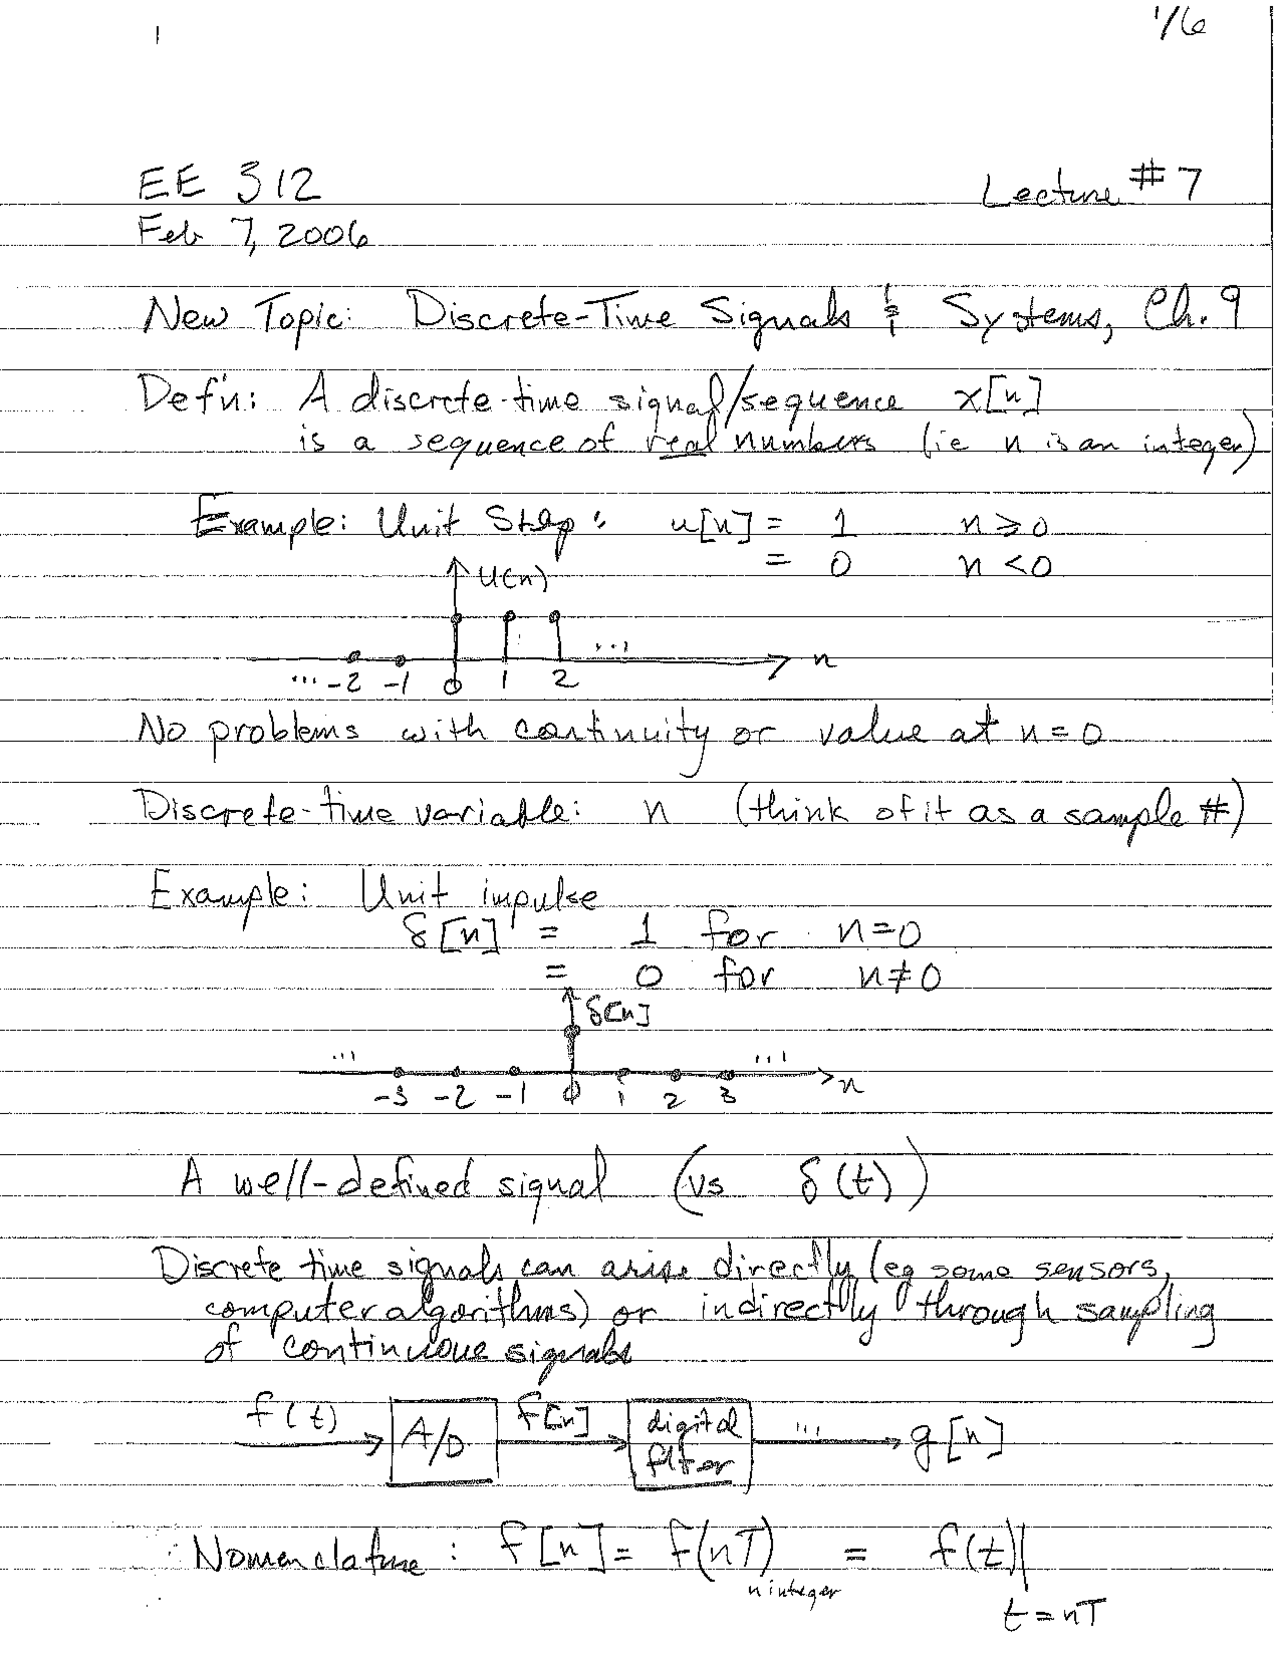 1/6
EE 312 Lecture #7
Feb 7, 2006
New Topic: Discrete-Time Signals & Systems, Ch. 9
Def'n: A discrete-time signal/sequence x[n]
is a sequence of real numbers (ie n is an integer)
Example: Unit Step: u[n] = 1 n ≥ 0
= 0 n < 0
u(n)
...
n
... -2 -1 0 1 2
No problems with continuity or value at n=0
Discrete-time variable: n (think of it as a sample #)
Example: Unit impulse
δ[n] = 1 for n=0
= 0 for n≠0
δ[n]
... ...
-3 -2 -1 0 1 2 3 n
A well-defined signal (vs δ(t))
Discrete time signals can arise directly (eg some sensors,
computer algorithms) or indirectly through sampling
of continuous signals
f(t) A/D f[n] digital filter ... g[n]
Nomenclature: f[n] = f(nT) = f(t)|
n integer
t=nT